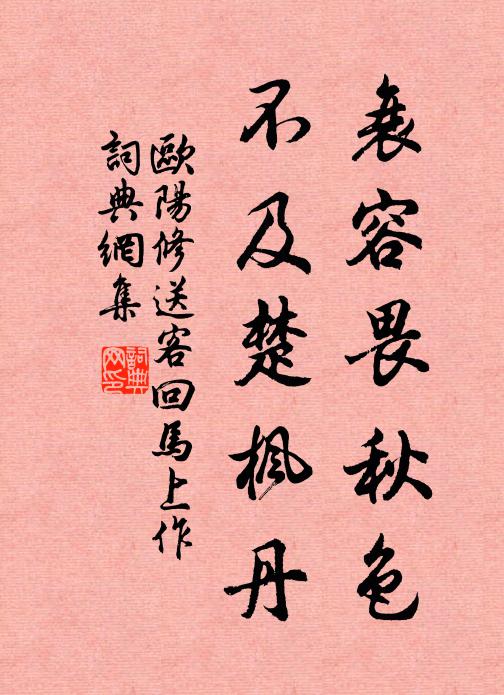 衰容畏秋色
不及楚楓丹
歐陽修送客回馬上作
詞典網集
詞典網印